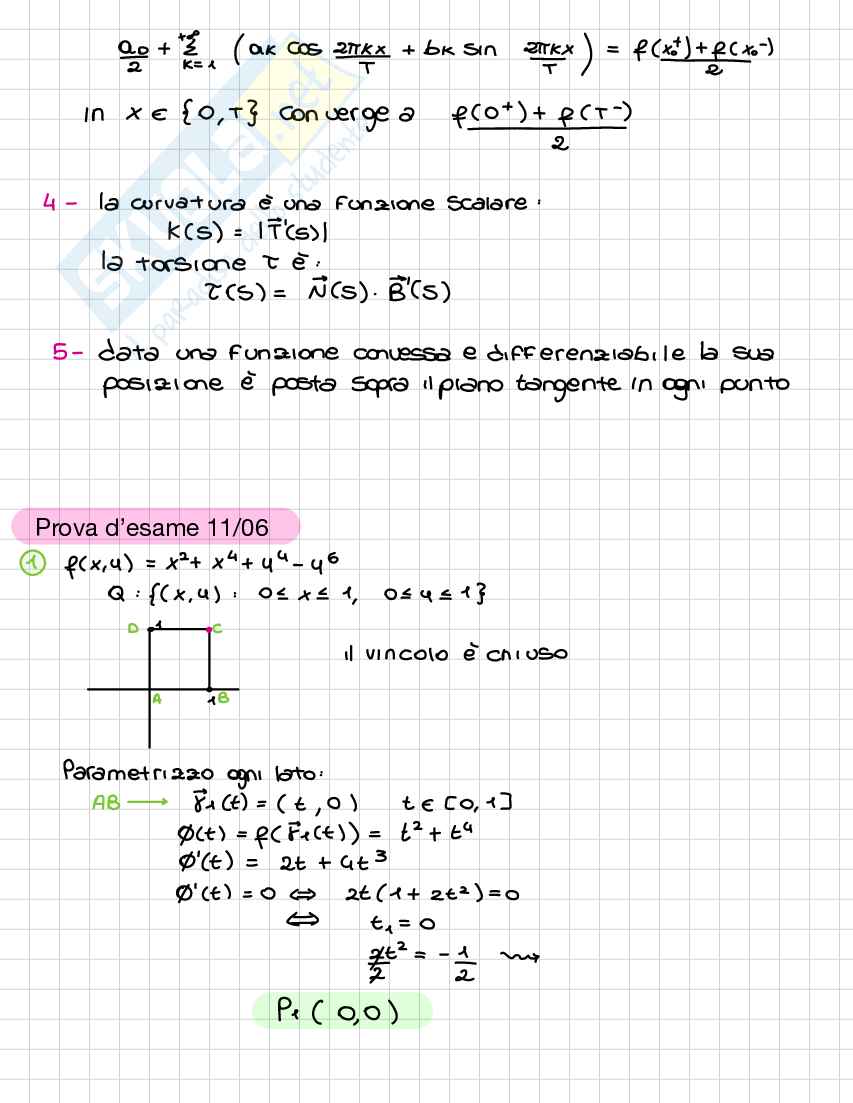 a0/2 + +∞ Σ k=1 (ak cos 2πkx/T + bk sin 2πkx/T) = f(x₀⁺)+f(x₀⁻)/2
In x ∈ {0,T} converge a f(0⁺)+f(T⁻)/2
4- la curvatura è una funzione scalare:
K(s) = |T⃗'(s)|
la torsione τ è:
τ(s) = N⃗(s) · B⃗'(s)
5- data una funzione convessa e differenziabile la sua
posizione è posta sopra il piano tangente in ogni punto
Prova d'esame 11/06
1 f(x,y) = x²+ x⁴+ y⁴- y⁶
Q : {(x,y) : 0≤ x ≤ 1, 0≤ y ≤ 1}
D 1 C
il vincolo è chiuso
A 1 B
Parametrizzo ogni lato:
AB → r⃗₁(t) = (t,0) t ∈ [0,1]
Ø(t) = f(r⃗₁(t)) = t² + t⁴
Ø'(t) = 2t + 4t³
Ø'(t) = 0 ⇔ 2t(1+2t²)=0
⇔ t₁ = 0
2t²/2 = -1/2 ⇝
P₁(0,0)
SKUOLA.net